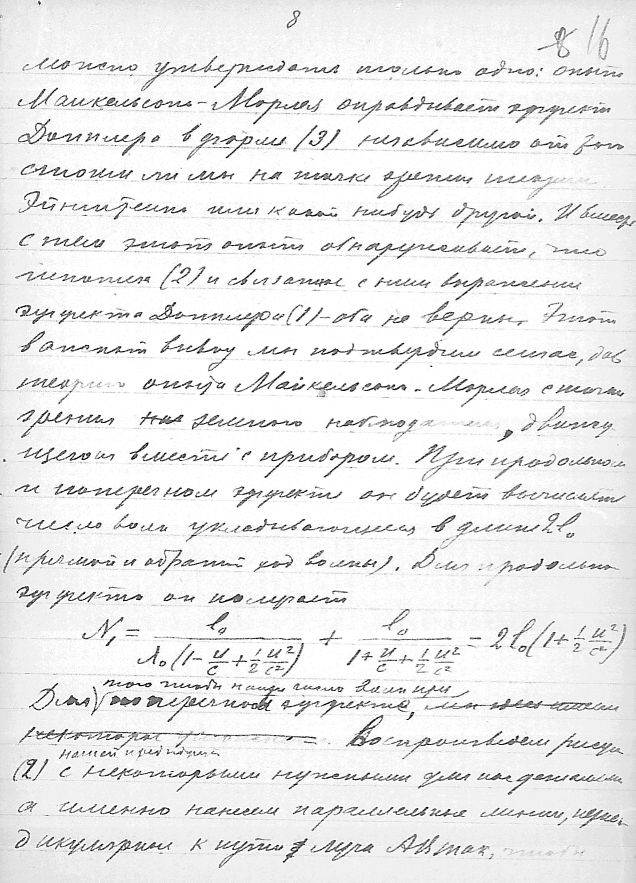 8
8 16
можно утверждать только одно: опыт
Майкельсона-Морлея оправдывает эффект
Допплера в форме (3) независимо от того
стоим ли мы на точке зрения теории
Эйнштейна или какой нибудь другой. И вместе
с тем этот опыт обнаруживает, что
гипотеза (2) и связанное с ним выражение
эффекта Допплера (1) - оба не верны. Этот
важный вывод мы подтвердим сейчас, дав
теорию опыта Майкельсона-Морлея с точки
зрения земного наблюдателя, движу
щегося вместе с прибором. При продольном
и поперечном эффекте он будет вычислять
число волн укладывающееся в длине 2l₀
(прямой и обратный ход волны). Для продольно
эффекта он получает
N₁ = l₀ / λ₀(1 - u/c + 1/2 u²/c²) + l₀ / 1 + u/c + 1/2 u²/c² = 2l₀(1 + 1/2 u²/c²)
того чтобы найти число волн при
Для поперечном эффекте, мы
некоторые Воспроизведем рисун
нашей
(2) с некоторыми нужными для нас деталями
а именно нанесем параллельные линии, перпен
дикулярные к пути луча АВ так, чтобы